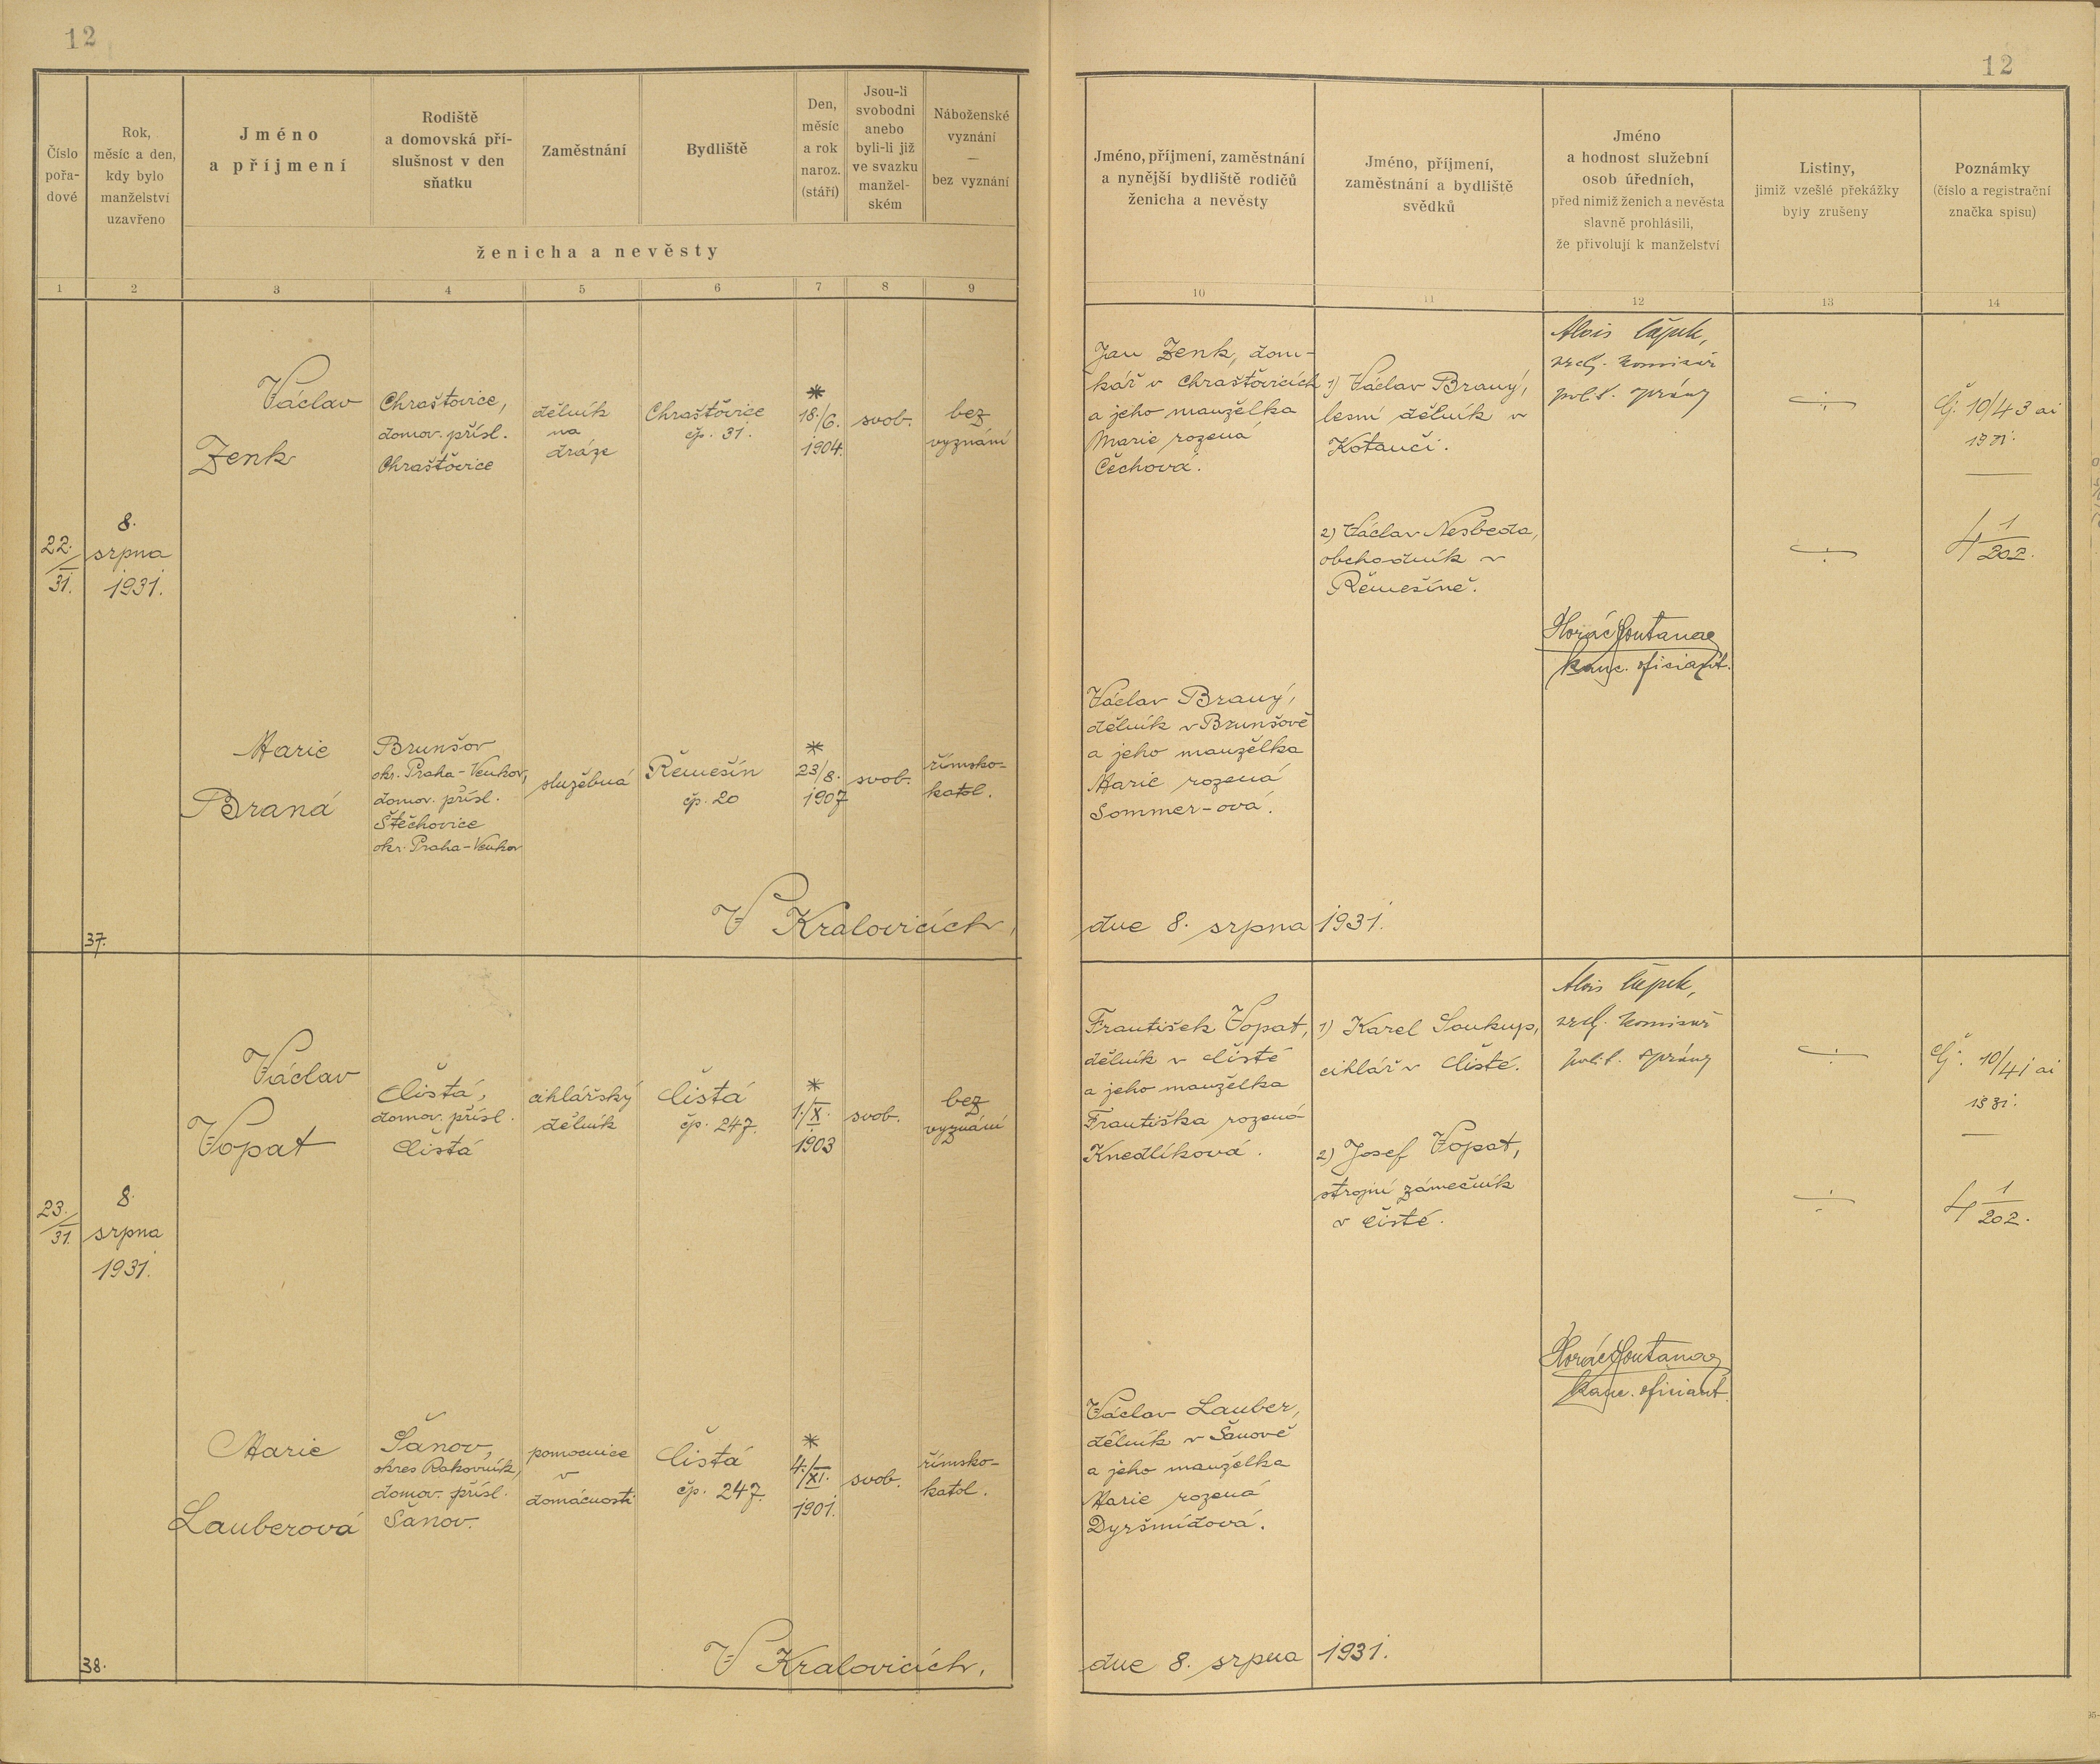 12
12
Číslo
pořa-
dové
Rok,
měsíc a den,
kdy bylo
manželství
uzavřeno
Jméno
a příjmení
Rodiště
a domovská pří-
slušnost v den
sňatku
Zaměstnání
Bydliště
Den,
měsíc
a rok
naroz.
(stáří)
Jsou-li
svobodni
anebo
byli-li již
ve svazku
manžel-
ském
Náboženské
vyznání
—
bez vyznání
ženicha a nevěsty
Jméno, příjmení, zaměstnání
a nynější bydliště rodičů
ženicha a nevěsty
Jméno, příjmení,
zaměstnání a bydliště
svědků
Jméno
a hodnost služební
osob úředních,
před nimiž ženich a nevěsta
slavně prohlásili,
že přivolují k manželství
Listiny,
jimiž vzešlé překážky
byly zrušeny
Poznámky
(číslo a registrační
značka spisu)
1 2 3 4 5 6 7 8 9 10 11 12 13 14
22./31.
8.
srpna
1931.
Václav
Zenk
Chrašťovice,
domov. přísl.
Chrašťovice
dělník
na
dráze
Chrašťovice
čp. 31.
*
18./6.
1904.
svob.
bez
vyznání
Jan Zenk, dom-
kář v Chrašťovicích
a jeho manželka
Marie rozená
Čechová.
1) Václav Braný,
lesní dělník v
Kotančí.
2) Václav Nesbeda,
obchodník v
Řemešíně.
Alois
komisař
polit. správy
kanc. oficiant.
čj. 10/43 ai
1931.
4 1/202.
Marie
Braná
Brunšov
okr. Praha-Venkov,
domov. přísl.
Štěchovice
okr. Praha-Venkov
služebná
Řemešín
čp. 20
*
23/8.
1907
svob.
římsko-
katol.
Václav Braný,
dělník v Brunšově
a jeho manželka
Marie rozená
Sommer-ová.
V Kralovicích,
dne 8. srpna 1931.
37.
23./31.
8.
srpna
1931.
Václav
Vopat
Čistá,
domov. přísl.
Čistá
cihlářský
dělník
Čistá
čp. 247.
*
1./X.
1903
svob.
bez
vyznání
František Vopat,
dělník v Čisté
a jeho manželka
Františka rozená
Knedlíková.
1) Karel Soukup,
cihlář v Čisté.
2) Josef Vopat,
strojní zámečník
v Čisté.
Alois
komisař
polit. správy
kanc. oficiant
čj. 10/41 ai
1931.
4 1/202.
Marie
Lauberová
Šanov,
okres Rakovník,
domov. přísl.
Šanov.
pomocnice
v
domácnosti
Čistá
čp. 247.
*
4./XI.
1901.
svob.
římsko-
katol.
Václav Lauber,
dělník v Šanově
a jeho manželka
Marie rozená
Dyršmídová.
V Kralovicích,
dne 8. srpna 1931.
38.